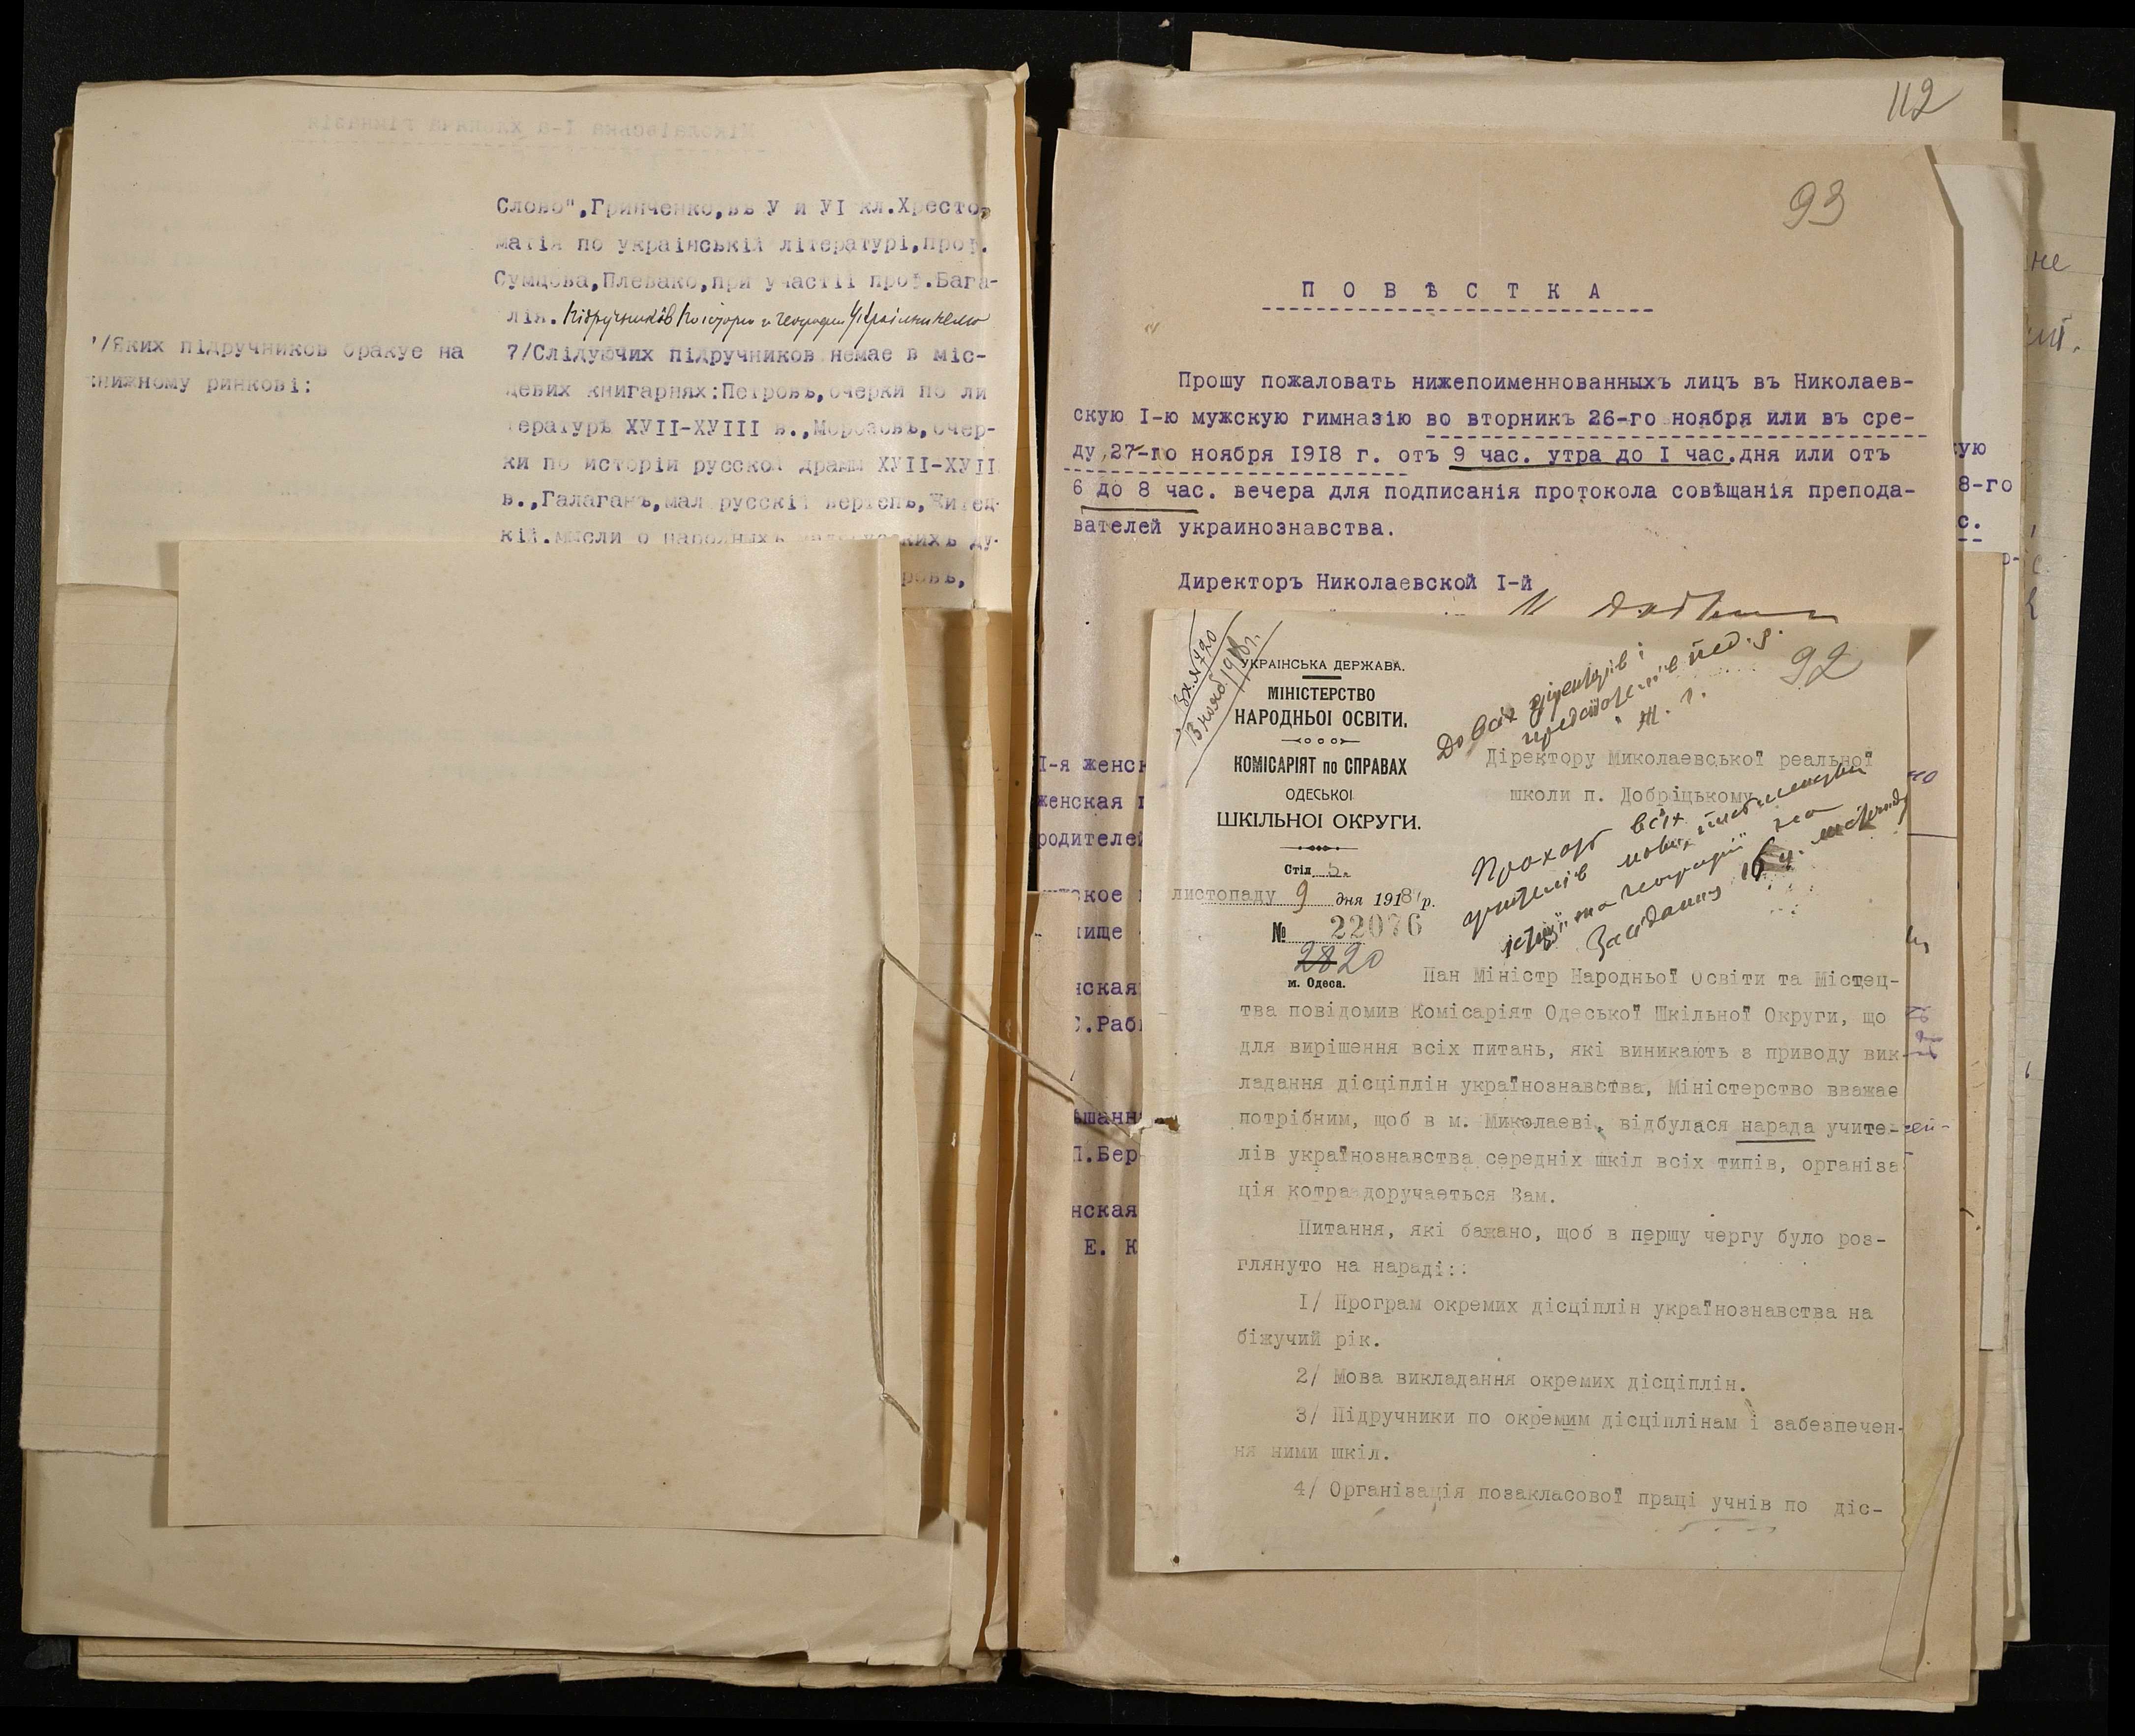 Слово",Гринченко,въ У и УІ кл.Хресто-
матія по українській літературі,проф.
Сумцова,Плевако,при участії проф.Бага-
лія. Підручників по історіи и географіи України нема
7/Яких підручников бракує на
книжному ринкові:
7/Слідуючих підручников немає в міс-
цевих книгарнях:Петровъ,очерки по ли
тературѣ ХУІІ-ХУІІІ в.,Морозовъ,очер-
ки по исторіи русской драмы ХУІІ-ХУІІ
в.,Галаганъ,мал русскій вертепъ,Житец-
кій.мысли о народныхъ ду-
ровъ,
112
93
П О В Ѣ С Т К А
Прошу пожаловать нижепоименнованныхъ лицъ въ Николаев-
скую І-ю мужскую гимназію во вторникъ 26-го ноября или въ сре-
ду 27-го ноября 1918 г. отъ 9 час. утра до І час.дня или отъ
6 до 8 час. вечера для подписанія протокола совѣщанія препода-
вателей украинознавства.
Директоръ Николаевской І-й
І-я женск
женская
родителей
ское
ище
нская
С.Раб
шанн
П.Бер
нская
Е. К
Вх. № 420
13 нояб. 1918 г.
92
УКРАІНСЬКА ДЕРЖАВА.
МІНІСТЕРСТВО
НАРОДНЬОІ ОСВІТИ.
КОМІСАРІЯТ по СПРАВАХ
ОДЕСЬКОІ
ШКІЛЬНОІ ОКРУГИ.
Стіл 5.
листопаду 9 дня 1918 р.
№ 22076
2820
м. Одеса.
До всіх діректорів і
Діректору Миколаевської реальної
школи п. Добріцькому
Прохать всіх
учителів мови, письменства
історії та географії на
засідання 16 ч. листопаду
Пан Міністр Народньої Освіти та Містец-
тва повідомив Комісаріят Одеської Шкільної Округи, що
для вирішення всіх питань, які виникають з приводу вик-
ладання дісціплін українознавства, Міністерство вважає
потрібним, щоб в м. Миколаеві, відбулася нарада учите-
лів українознавства середніх шкіл всіх типів, організа
ція котра доручаеться Вам.
Питання, які бажано, щоб в першу чергу було роз-
глянуто на нараді::
І/ Програм окремих дісціплін українознавства на
біжучий рік.
2/ Мова викладання окремих дісціплін.
3/ Підручники по окремим дісціплінам і забезпечен-
ня ними шкіл.
4/ Організація позакласової праці учнів по діс-
не
кую
8-го
с.